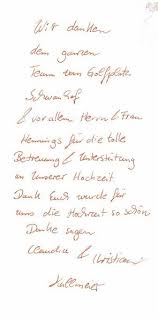 Wir danken
dem ganzen
Team vom Golfplatz
Schwanhof
& vor allem Herrn & Frau
Hennings für die tolle
Betreuung & Unterstützung
an unserer Hochzeit
Dank Euch wurde für
uns die Hochzeit so schön
Danke sagen
Claudia & Christian